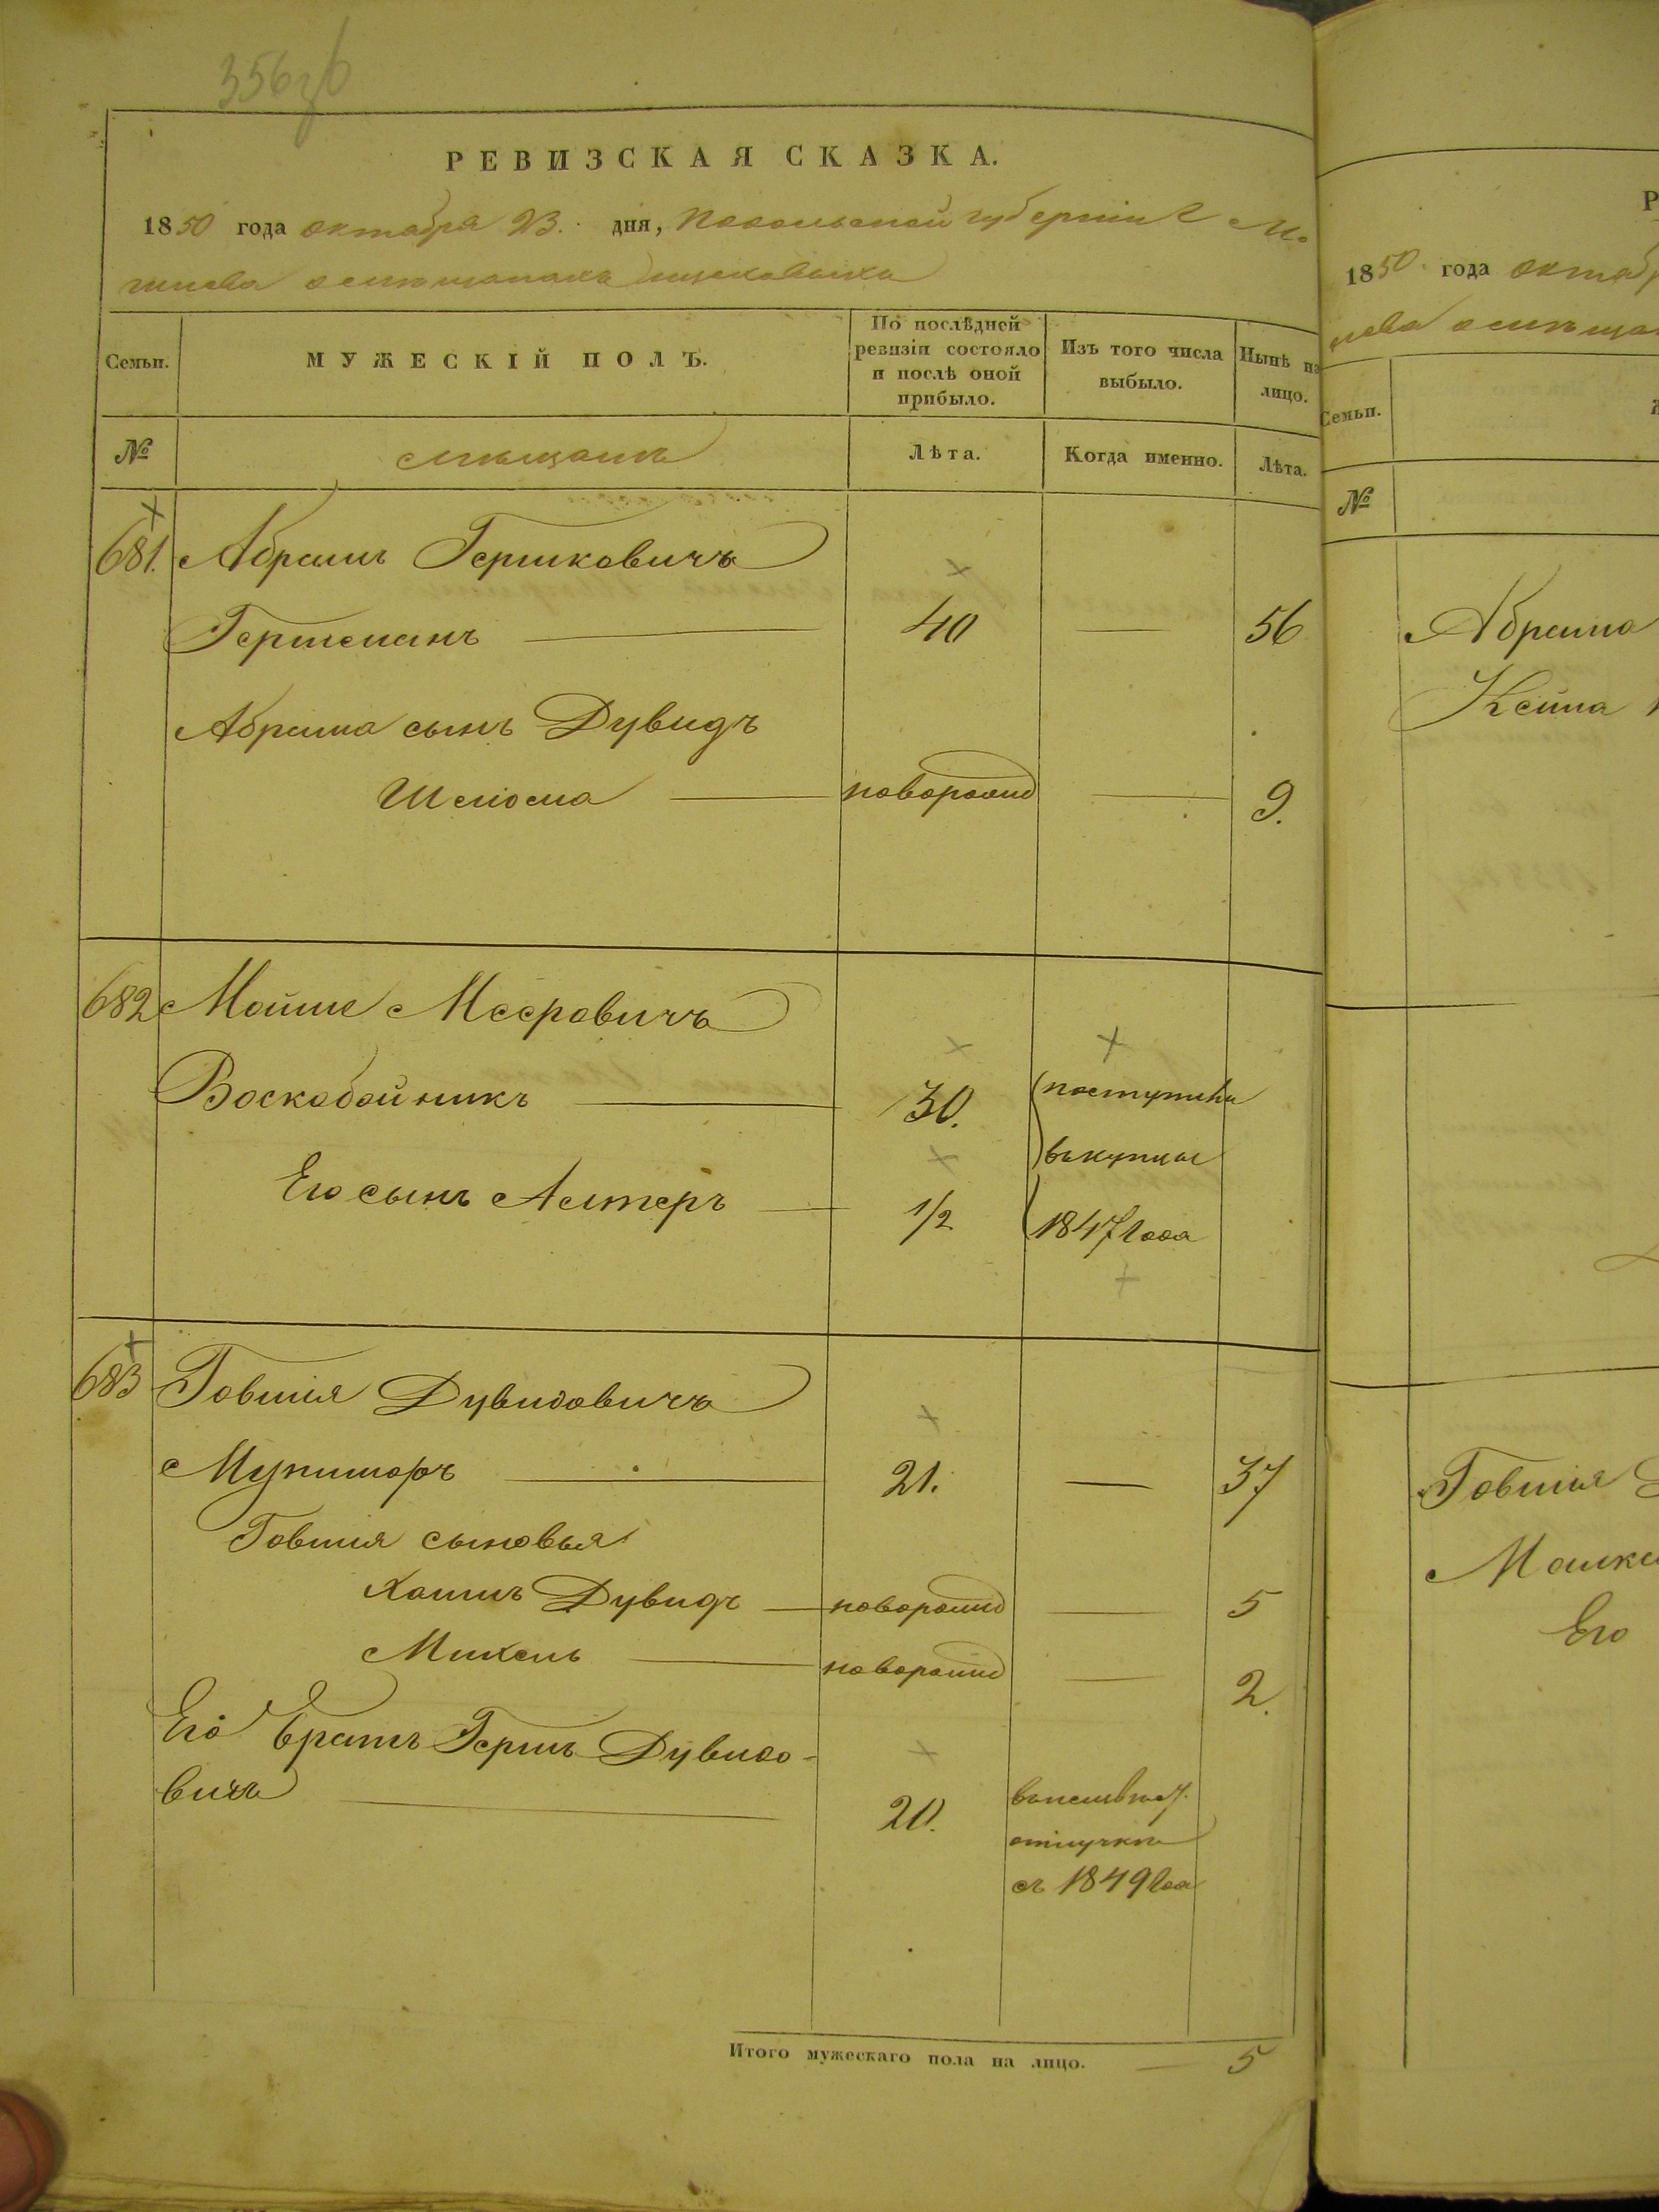 356 об
РЕВИЗСКАЯ СКАЗКА.
1850 года октября 23. дня, Подольской губернiи г Мо
гилева о мѣщанахъ
Семьи.
МУЖЕСКІЙ ПОЛЪ.
По послѣдней ревизіи состояло и послѣ оной прибыло.
Изъ того числа выбыло.
Нынѣ на лицо.
№
мѣщанъ
Лѣта.
Когда именно.
Лѣта.
681. Абрамъ Гершковичъ
Гершманъ 40 56
Абрама сынъ Дувидъ
Шлiома новорожд 9.
682 Мойше Мееровичъ
Воскобойникъ 30. поступили
въ купцы
Его сынъ Алтеръ 1/2 1847 года
683 Товшия Дувидовичъ
21. 37
Товшия сыновья
Хаимъ Дувидъ новорожд 5
Михель новорожд 2.
Его братъ Гершъ Дувидо-
вичъ 20.
отлучкѣ
съ 1849 года
Итого мужескаго пола на лицо. 5
Р
1850 года октяб
лева о мѣща
Семьи.
№
Абрама
Хейма
Товшия Д
Малке
Его